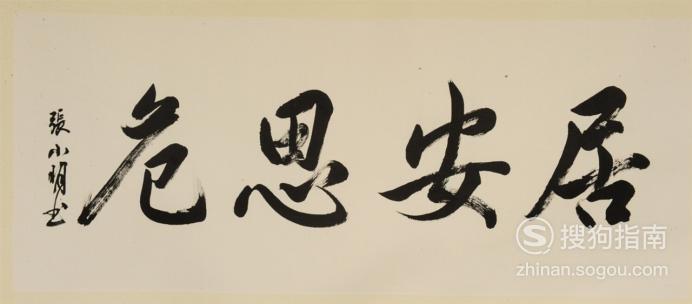 居安思危
張小明书
搜狗指南
zhinan.sogou.com